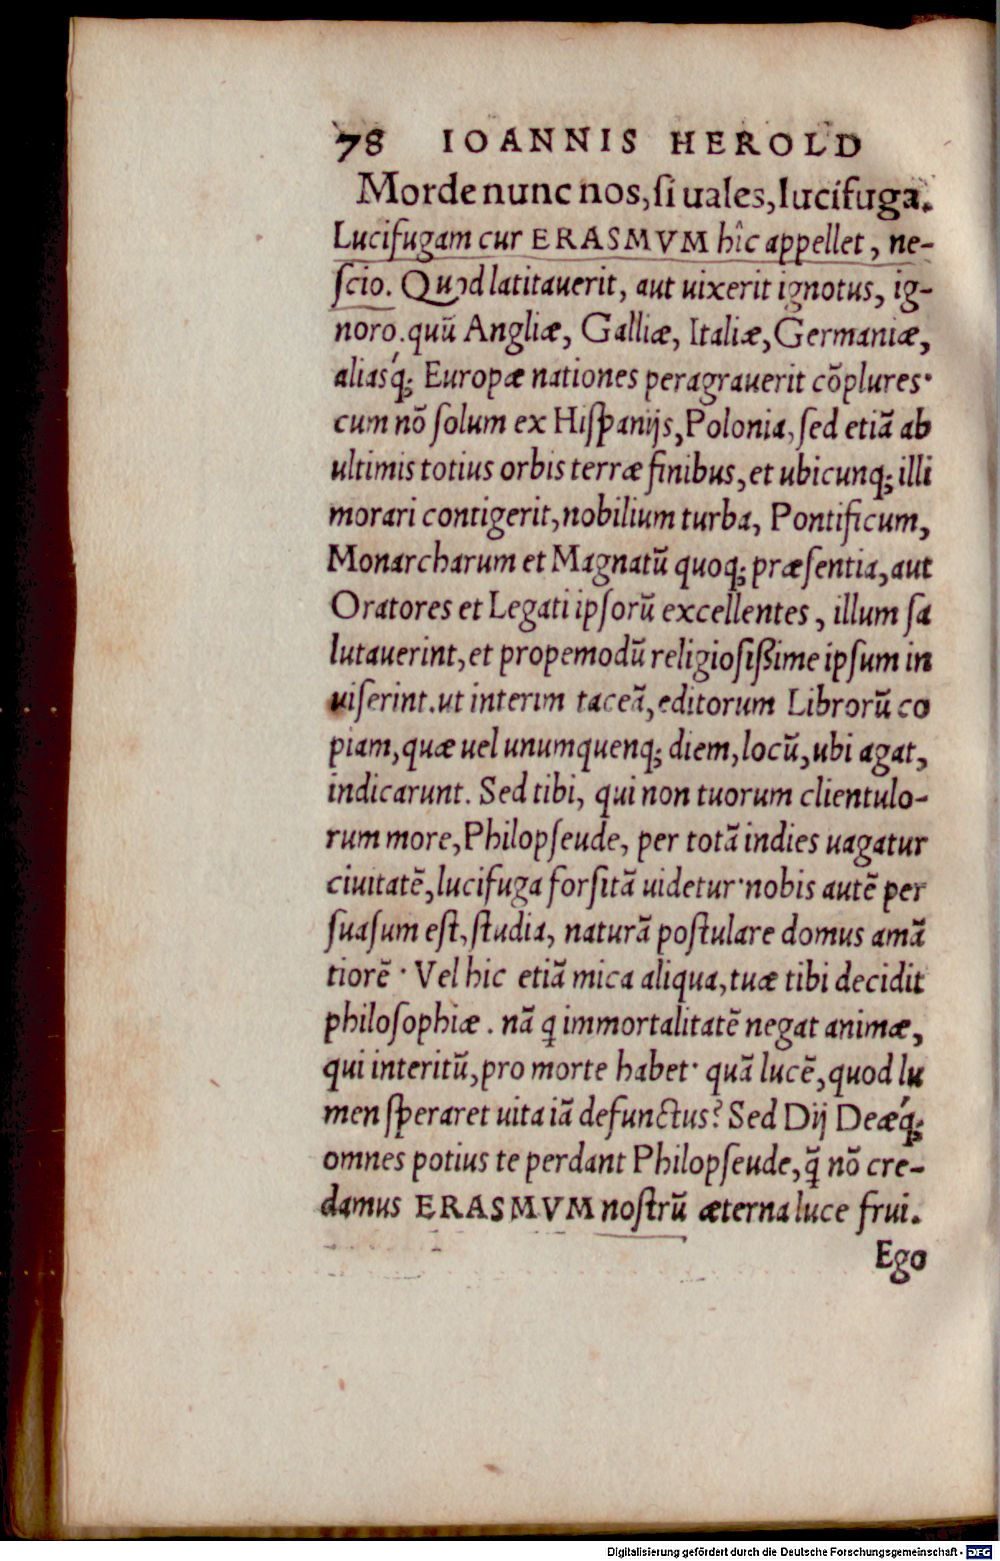 78 IOANNIS HEROLD
Morde nunc nos, ſi uales, lucifuga.
Lucifugam cur ERASMVM hîc appellet, ne-
ſcio. Quod latitauerit, aut uixerit ignotus, ig-
noro. quũ Angliæ, Galliæ, Italiæ, Germaniæ,
aliasq́; Europæ nationes peragrauerit cõplures·
cum nõ ſolum ex Hiſpanijs, Polonia, ſed etiã ab
ultimis totius orbis terræ finibus, et ubicunq; illi
morari contigerit, nobilium turba, Pontificum,
Monarcharum et Magnatũ quoq; præſentia, aut
Oratores et Legati ipſorũ excellentes, illum ſa
lutauerint, et propemodũ religioſißime ipſum in
uiſerint. ut interim taceã, editorum Librorũ co
piam, quæ uel unumquenq; diem, locũ, ubi agat,
indicarunt. Sed tibi, qui non tuorum clientulo-
rum more, Philopſeude, per totã indies uagatur
ciuitatẽ, lucifuga forſitã uidetur· nobis autẽ per
ſuaſum eſt, ſtudia, naturã poſtulare domus amã
tiorẽ · Vel hic etiã mica aliqua, tuæ tibi decidit
philoſophiæ. nã q immortalitatẽ negat animæ,
qui interitũ, pro morte habet· quã lucẽ, quod lu
men ſperaret uita iã defunctus? Sed Dij Deæq́;
omnes potius te perdant Philopſeude, q̃ nõ cre-
damus ERASMVM noſtrũ æterna luce frui.
Ego
Digitalisierung gefördert durch die Deutsche Forschungsgemeinschaft - DFG